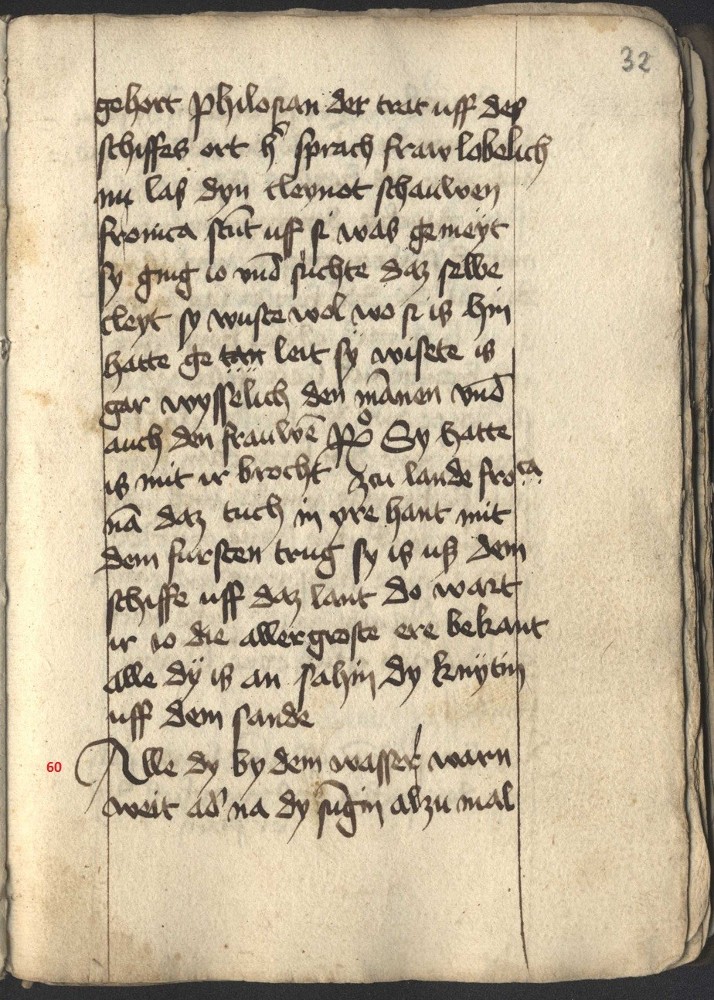 32
gehort philosian der trat uff des
schiffes ort h' sprach fraw lobelich
nu las dyn cleynot schauwen
fronica stūt uff si was gemeyt
sy ging io vnd suchte daz selbe
cleyt sy wuste wol wo si is hin
hatte ge tan leit sy wisete is
gar wysselich den mānen vnd
auch den frauwē Sy hatte
is mit ir brocht zcu lande fro ca
nā daz tuch in yre hant mit
dem fursten trug sy is uß dem
schiffe uff daz lant do wart
ir io die aller groste ere bekant
alle dÿ is an sahin dy knÿtin
uff dem sande
60
Alle dy by dem wasser warn
weit ad' na dy fūgin alzu mal